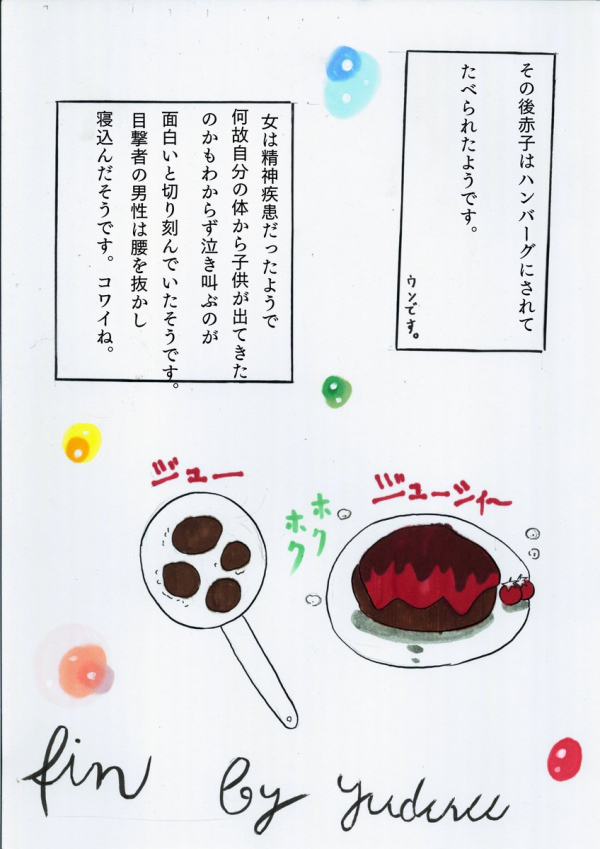 その後赤子はハンバーグにされて
たべられたようです。
ウンです。
女は精神疾患だったようで
何故自分の体から子供が出てきた
のかもわからず泣き叫ぶのが
面白いと切り刻んでいたそうです。
目撃者の男性は腰を抜かし
寝込んだそうです。コワイね。
ジューシィ〜
ホク
ホク
ジュー
fin by yuderu